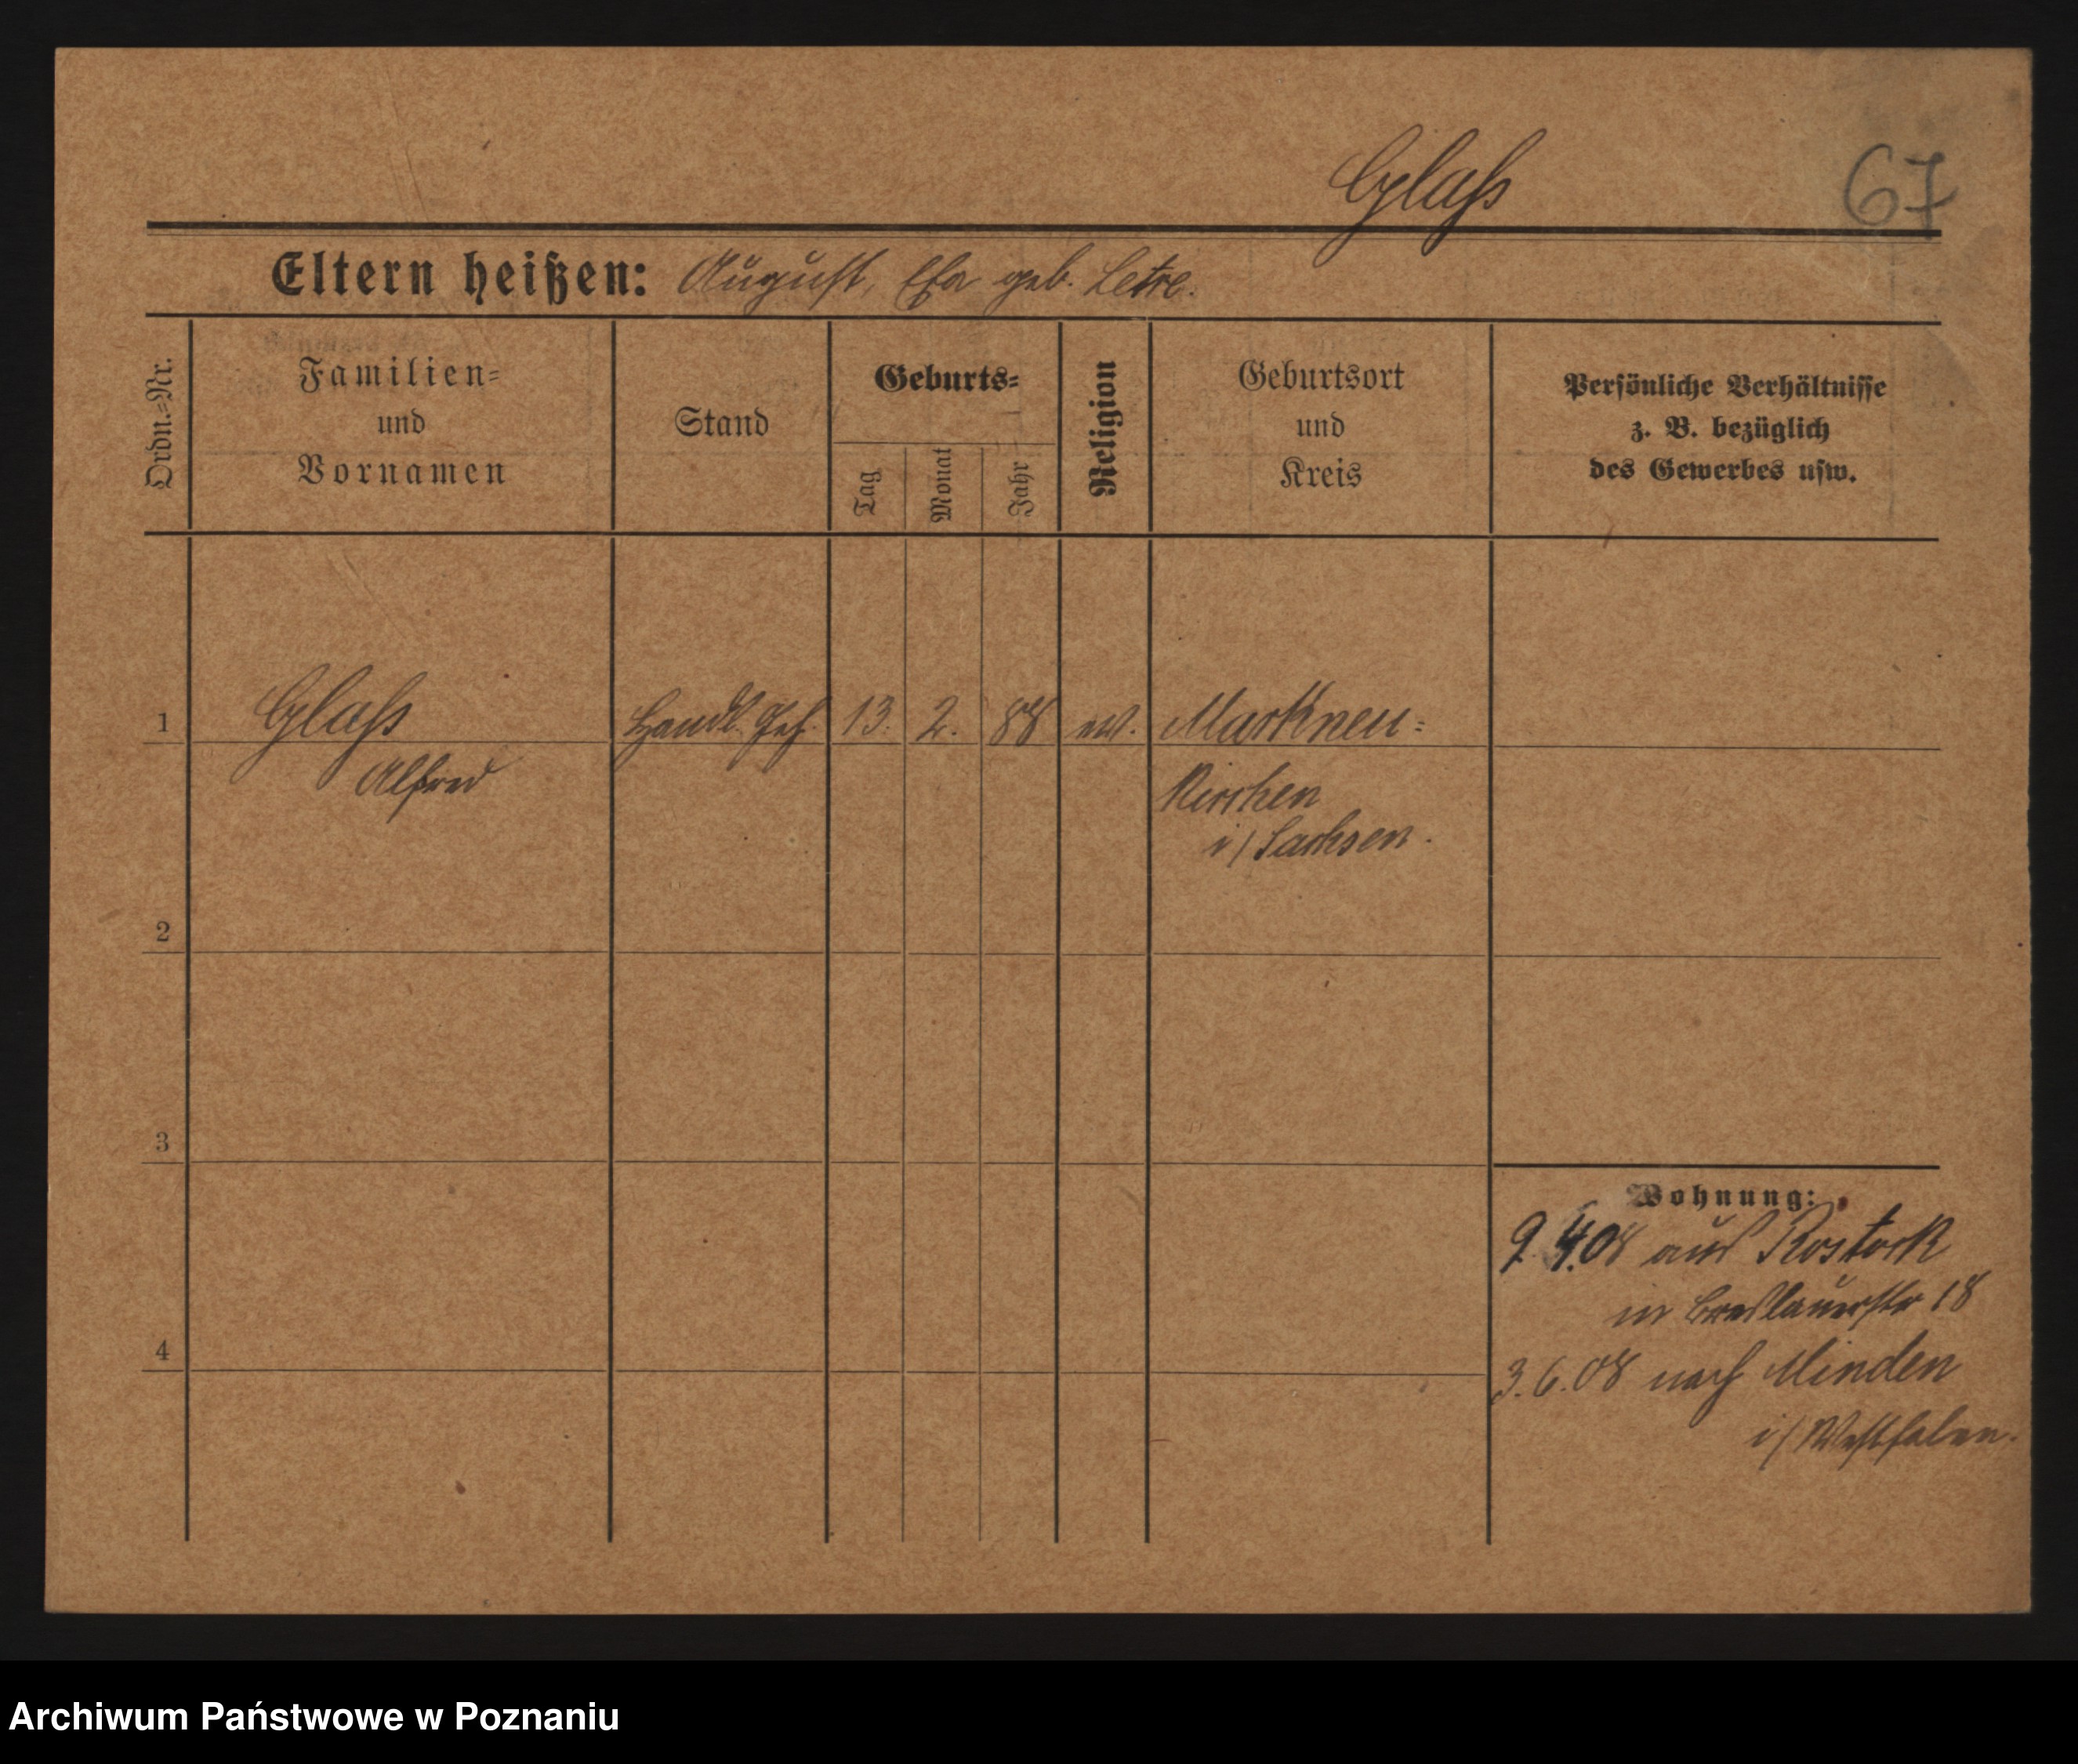 Glaß
67
Eltern heißen: August, geb.
Ordn.=Nr.
Familien=
und
Vornamen
Stand
Geburts=
Tag
Monat
Jahr
Religion
Geburtsort
und
Kreis
Persönliche Verhältnisse
z. B. bezüglich
des Gewerbes usw.
1 Glaß Handl. Geh. 13. 2. 88 ev. Markneu=
Alfred
kirchen
i/Sachsen.
2
3
4
Wohnung:
9. 4.08 aus Rostock
in Breslauerstr 18
3. 6. 08 nach Minden
i/Westfalen.
Archiwum Państwowe w Poznaniu